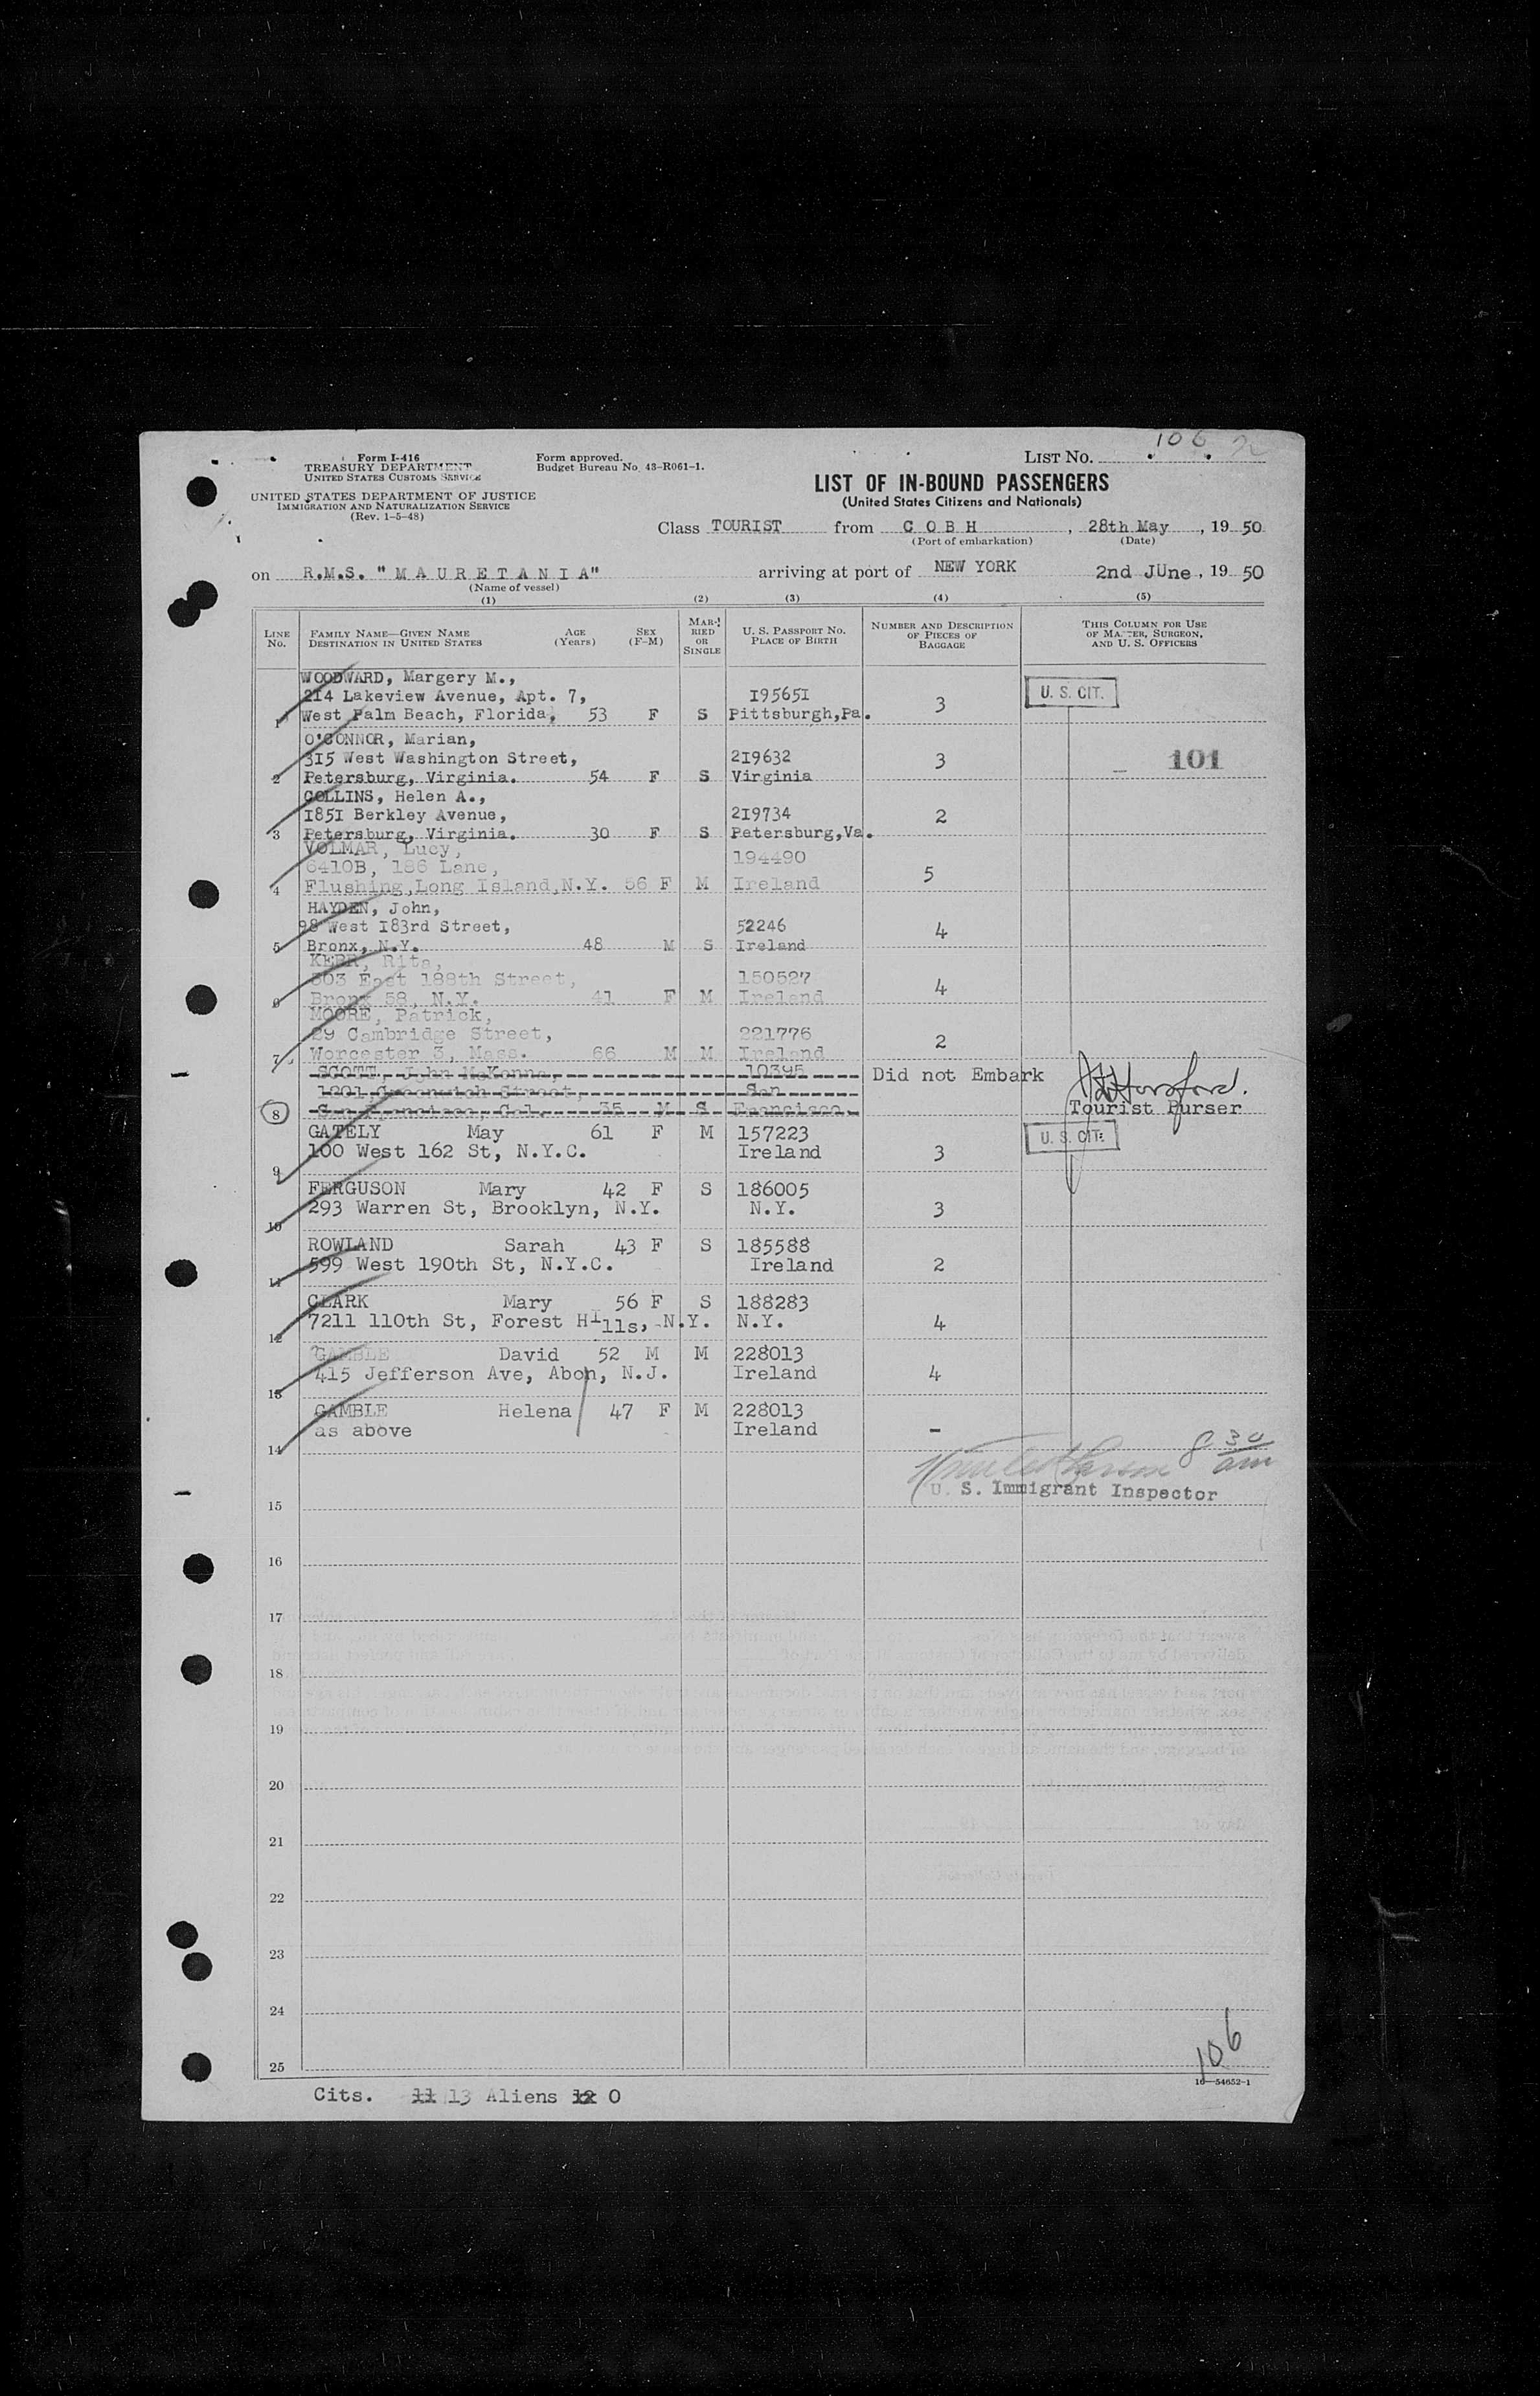 106
Form I-416
TREASURY DEPARTMENT
UNITED STATES CUSTOMS SERVICE
Form approved.
Budget Bureau No. 43-R061-1.
LIST No.
UNITED STATES DEPARTMENT OF JUSTICE
IMMIGRATION AND NATURALIZATION SERVICE
(Rev. 1-5-48)
LIST OF IN-BOUND PASSENGERS
(United States Citizens and Nationals)
Class TOURIST from C O B H , 28th May , 19 50
(Port of embarkation) (Date)
on R.M.S. "M A U R E T A N I A" arriving at port of NEW YORK 2nd JUne , 19 50
(Name of vessel)
(1) (2) (3) (4) (5)
LINE No. FAMILY NAME—GIVEN NAME DESTINATION IN UNITED STATES AGE (Years) SEX (F-M) MARRIED OR SINGLE U. S. PASSPORT NO. PLACE OF BIRTH NUMBER AND DESCRIPTION OF PIECES OF BAGGAGE THIS COLUMN FOR USE OF MASTER, SURGEON, AND U. S. OFFICERS
WOODWARD, Margery M.,
214 Lakeview Avenue, Apt. 7, 195651 3 U. S. CIT.
1 West Palm Beach, Florida, 53 F S Pittsburgh,Pa.
O'CONNOR, Marian,
315 West Washington Street, 219632 3 101
2 Petersburg, Virginia. 54 F S Virginia
COLLINS, Helen A.,
1851 Berkley Avenue, 219734 2
3 Petersburg, Virginia. 30 F S Petersburg,Va.
VOLMAR, Lucy,
6410B, 186 Lane, 194490 5
4 Flushing,Long Island,N.Y. 56 F M Ireland
HAYDEN, John,
98 West 183rd Street, 52246 4
5 Bronx, N.Y. 48 M S Ireland
KERR, Rita,
303 East 188th Street, 150527 4
6 Bronx 58, N.Y. 41 F M Ireland
MOORE, Patrick,
29 Cambridge Street, 221776 2
7 Worcester 3, Mass. 66 M M Ireland
SCOTT, John McKenna, 10395 Did not Embark
1801 Greenwich Street, San
8 San Francisco, Cal. 35 M S Francisco. Tourist Purser
GATELY May 61 F M 157223 U. S. CIT.
9 100 West 162 St, N.Y.C. Ireland 3
FERGUSON Mary 42 F S 186005
10 293 Warren St, Brooklyn, N.Y. N.Y. 3
ROWLAND Sarah 43 F S 185588
11 599 West 190th St, N.Y.C. Ireland 2
CLARK Mary 56 F S 188283
12 7211 110th St, Forest HIlls, N.Y. N.Y. 4
GAMBLE David 52 M M 228013
13 415 Jefferson Ave, Abon, N.J. Ireland 4
GAMBLE Helena 47 F M 228013
14 as above Ireland -
8 30 am
U. S. Immigrant Inspector
15
16
17
18
19
20
21
22
23
24
25
106
16—54652-1
Cits. 11 13 Aliens 12 0